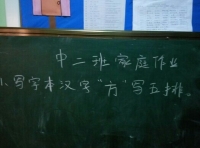 中二班家庭作业
1、写字本汉字“方”写五排。